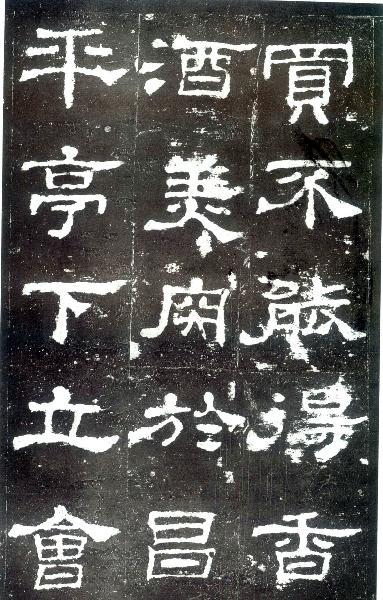 買不能得香
酒美肉於昌
平亭下立會